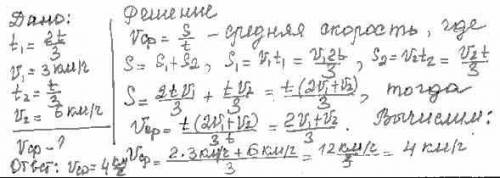 Дано:
t₁ = 2t/3
v₁ = 3 км/ч
t₂ = t/3
v₂ = 6 км/ч
vср - ?
Решение
vср = S/t - средняя скорость, где
S = S₁ + S₂, S₁ = v₁t₁ = v₁2t/3, S₂ = v₂t₂ = v₂t/3
S = 2tv₁/3 + tv₂/3 = t(2v₁+v₂)/3, тогда
vср = t(2v₁+v₂)/3t = 2v₁+v₂/3. Вычислим:
vср = 2·3км/ч + 6км/ч/3 = 12км/ч/3 = 4 км/ч
Ответ: vср = 4 км/ч